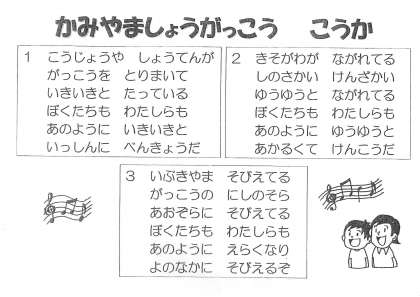 かみやましょうがっこう　こうか
1　こうじょうや　しょうてんが
がっこうを　とりまいて
いきいきと　たっている
ぼくたちも　わたしらも
あのように　いきいきと
いっしんに　べんきょうだ
2　きそがわが　ながれてる
しのさかい　けんざかい
ゆうゆうと　ながれてる
ぼくたちも　わたしらも
あのように　ゆうゆうと
あかるくて　けんこうだ
3　いぶきやま　そびえてる
がっこうの　にしのそら
あおぞらに　そびえてる
ぼくたちも　わたしらも
あのように　えらくなり
よのなかに　そびえるぞ